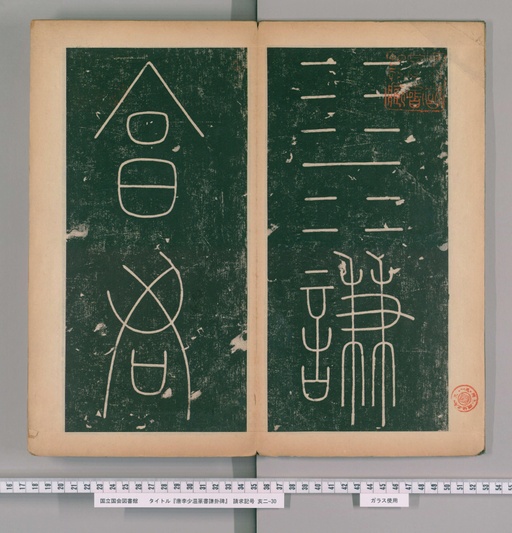 ䷎
謙
亯
君
国立国会図書館 タイトル『唐李少温篆書謙卦碑』 請求記号 亥二-30
ガラス使用